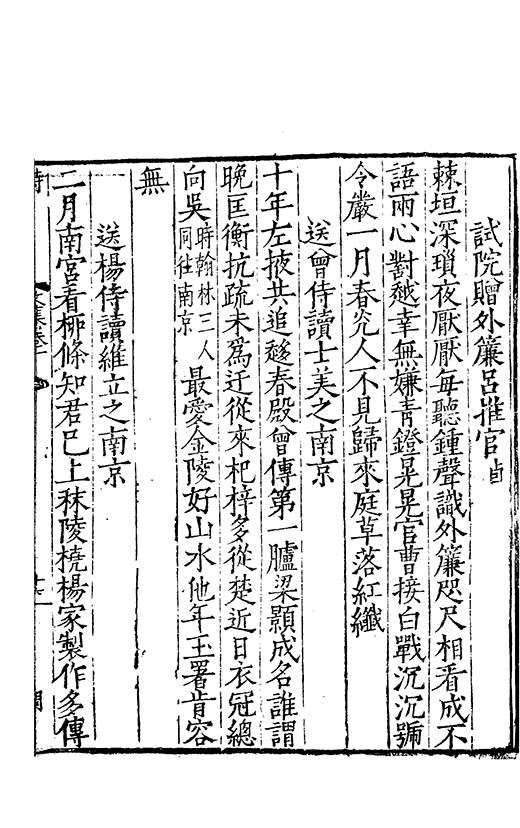 試院贈外簾呂推官卣
棘垣深瑣夜厭厭每聽鍾聲識外簾咫尺相看成不
語兩心對越幸無嫌青鐙晃晃官曹接白戰沉沉號
令嚴一月春光人不見歸來庭草落紅纖
送曾侍讀士美之南京
十年左掖共追趨春殿曾傳第一臚梁顥成名誰謂
晚匡衡抗疏未爲迂從來杞梓多從楚近日衣冠總
向吳時翰林三人同往南京最愛金陵好山水他年玉署肯容
無
送楊侍讀維立之南京
二月南宮看柳條知君已上秣陵橈楊家製作多傳